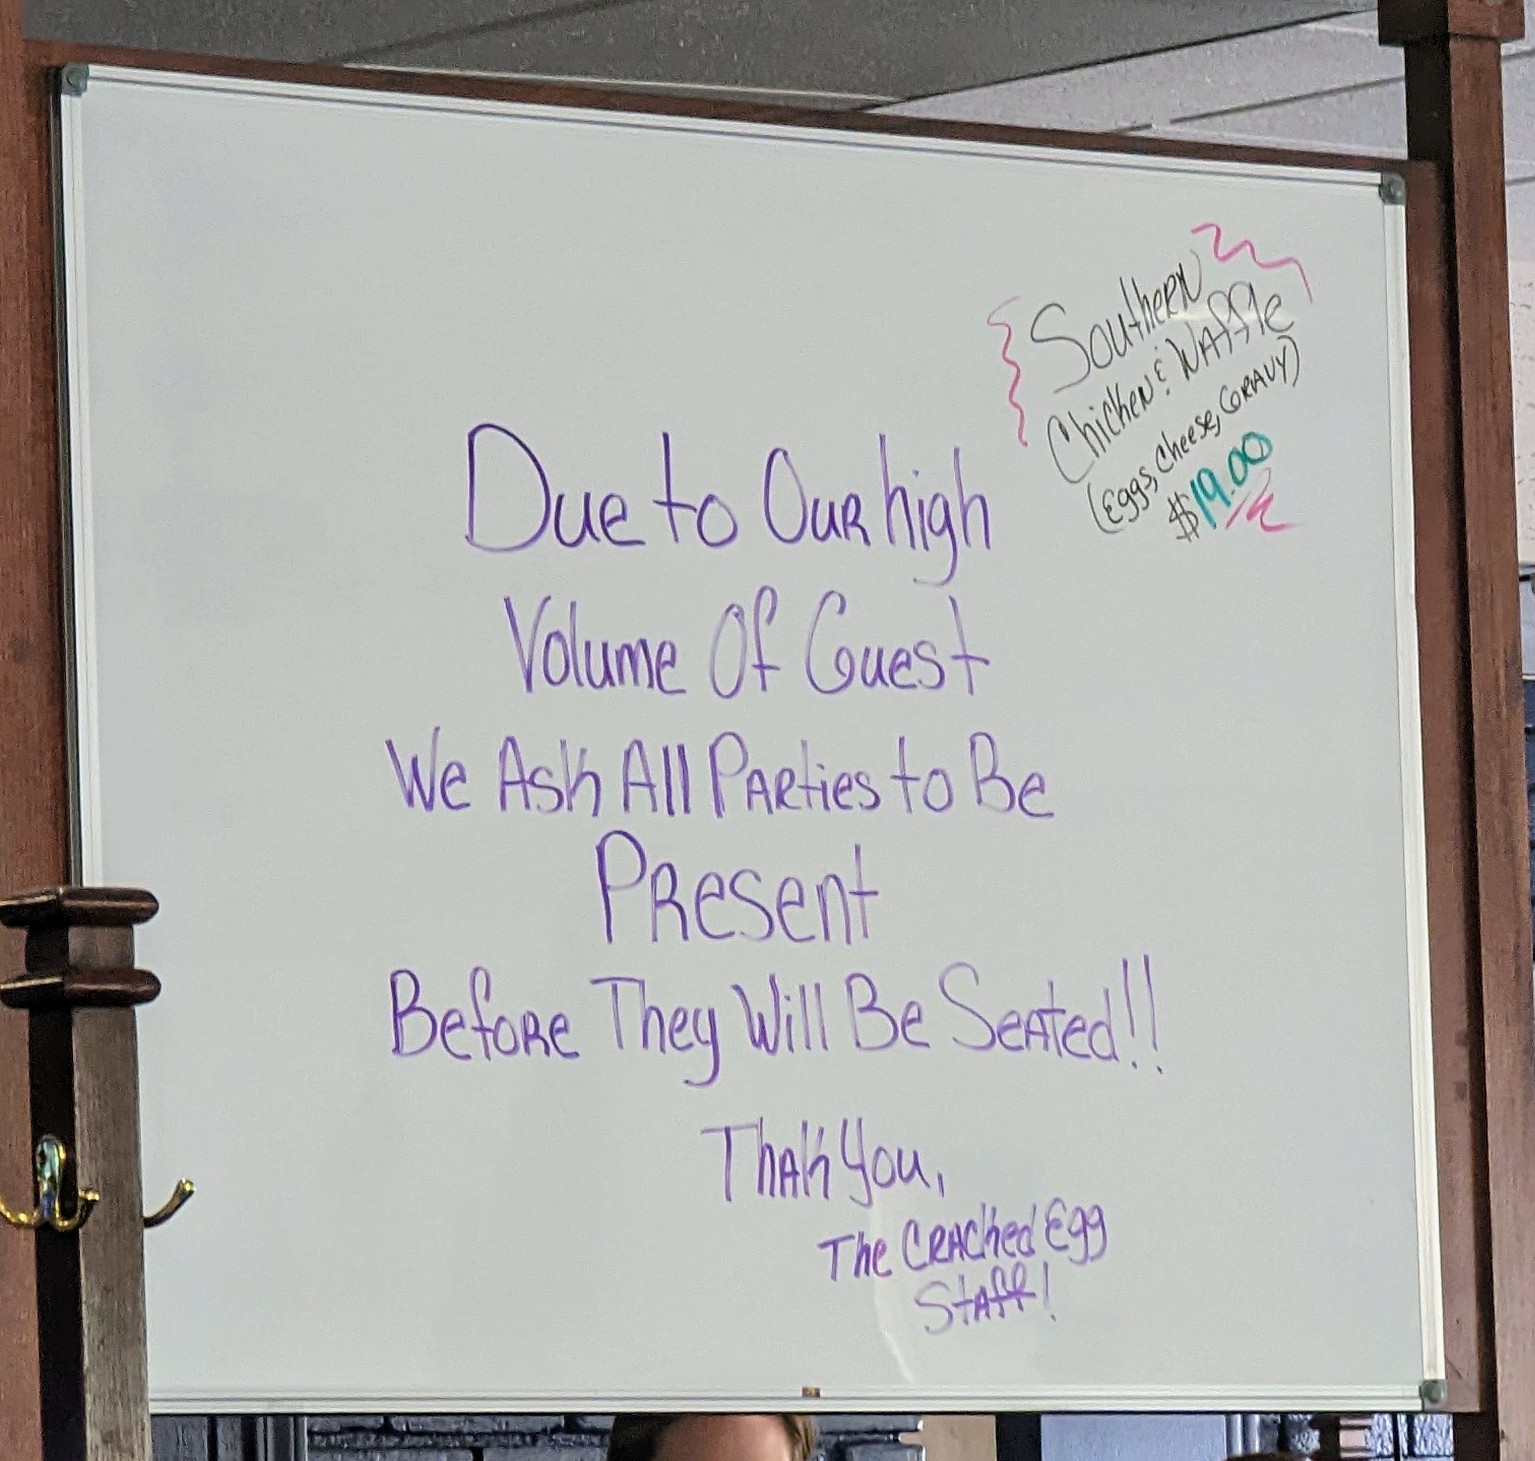 Southern
Chicken & Waffle
(Eggs, Cheese, Gravy)
$19.00
Due to Our high
Volume Of Guest
We Ask All Parties to Be
Present
Before They Will Be Seated!!
Thak You,
The Cracked Egg
Staff!